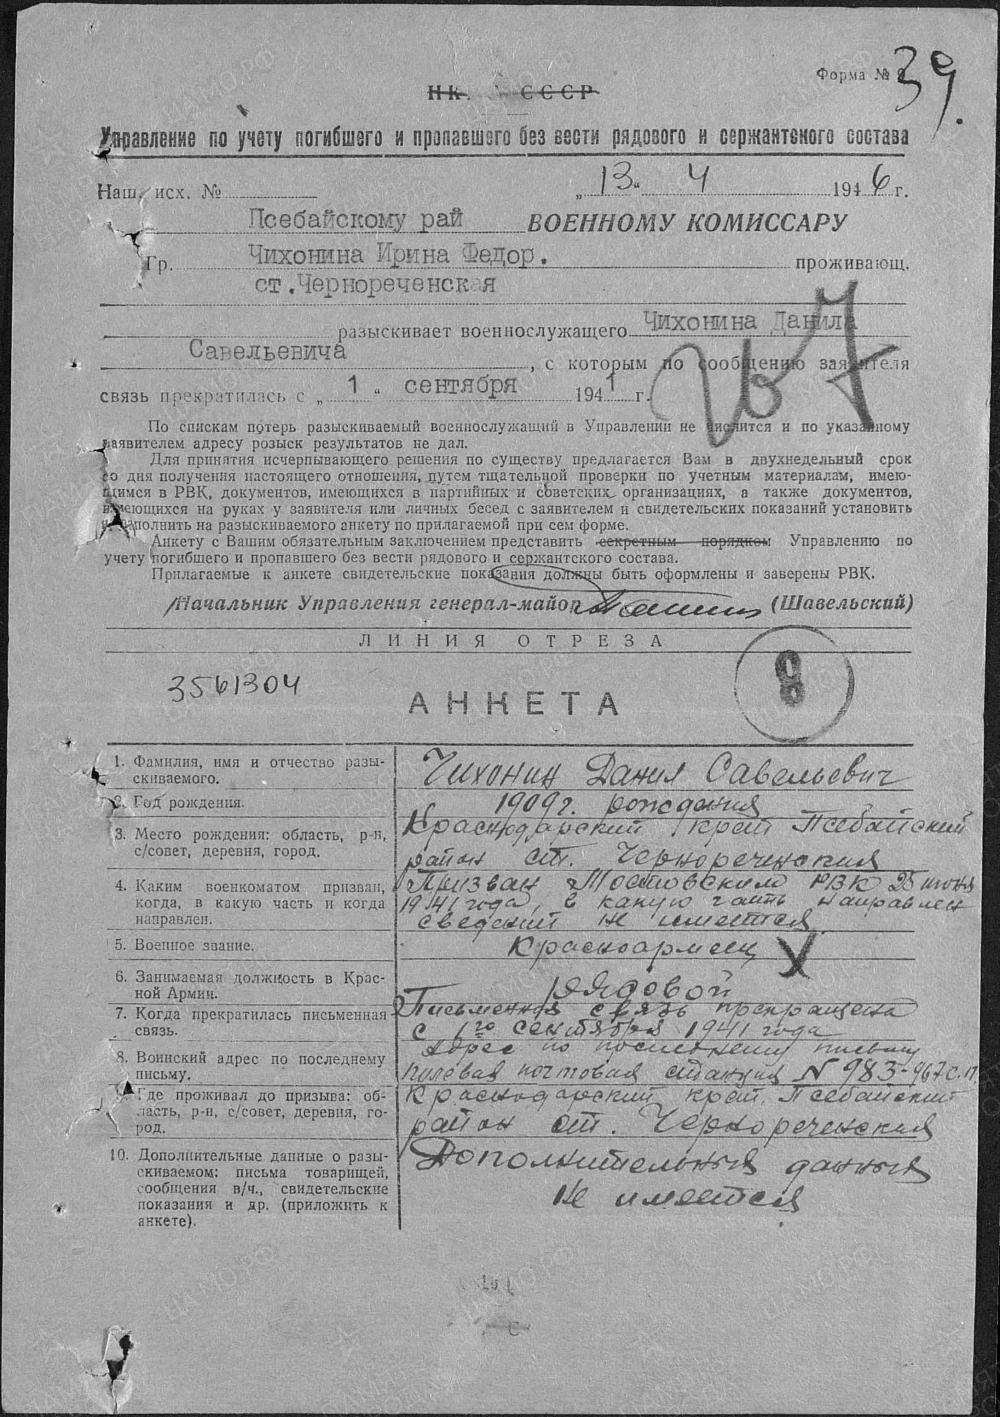 Форма №
39.
НК. СССР
Управление по учету погибшего и пропавшего без вести рядового и сержантского состава
Наш. исх. № „13" 4 1946 г.
Псебайскому рай ВОЕННОМУ КОМИССАРУ
Гр. Чихонина Ирина Федор. проживающ.
ст.Чернореченская
разыскивает военнослужащего Чихонина Данила
Савельевича, с которым по сообщению заявителя
связь прекратилась с „ 1 " сентября 1941 г.
По спискам потерь разыскиваемый военнослужащий в Управлении не числится и по указанному
заявителем адресу розыск результатов не дал.
Для принятия исчерпывающего решения по существу предлагается Вам в двухнедельный срок
со дня получения настоящего отношения, путем тщательной проверки по учетным материалам, имею-
щимся в РВК, документов, имеющихся в партийных и советских организациях, а также документов,
имеющихся на руках у заявителя или личных бесед с заявителем и свидетельских показаний установить
и заполнить на разыскиваемого анкету по прилагаемой при сем форме.
Анкету с Вашим обязательным заключением представить секретным порядком Управлению по
учету погибшего и пропавшего без вести рядового и сержантского состава.
Прилагаемые к анкете свидетельские показания должны быть оформлены и заверены РВК.
/Начальник Управления генерал-майор (Шавельский)
ЛИНИЯ ОТРЕЗА
3561304
8
АНКЕТА
1. Фамилия, имя и отчество разы-
скиваемого.
Чихонин Данил Савельевич
2. Год рождения.
1909 г. рождения
3. Место рождения: область, р-н,
с/совет, деревня, город.
Краснодарский край Псебайский
район ст. Чернореченския
4. Каким военкоматом призван,
когда, в какую часть и когда
направлен.
Призван Мостовским РВК 25 июня
1941 года, в какую часть направлен
сведений не имеется
5. Военное звание.
Красноармеец
6. Занимаемая должность в Крас-
ной Армии.
рядовой
7. Когда прекратилась письменная
связь.
Письменная связь прекращена
с 1го сентября 1941 года
8. Воинский адрес по последнему
письму.
Адрес по последнему письму
полевая почтовая станция N 983-967 с.п.
9. Где проживал до призыва: об-
ласть, р-н, с/совет, деревня, го-
род.
Краснодарский край, Псебайский
район ст. Чернореченския
10. Дополнительные данные о разы-
скиваемом: письма товарищей,
сообщения в/ч., свидетельские
показания и др. (приложить к
анкете).
Дополнительныя данныя
не имеется